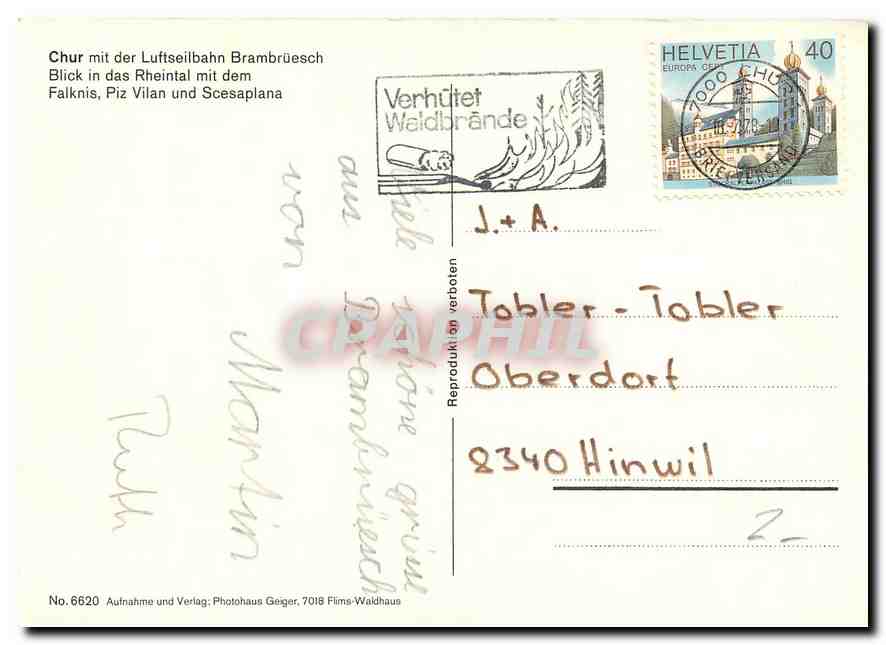 Chur mit der Luftseilbahn Brambrüesch
Blick in das Rheintal mit dem
Falknis, Piz Vilan und Scesaplana
Verhütet
Waldbrände
HELVETIA 40
EUROPA CEPT
7000 CHUR
18.-7.78.-
BRIEFVERSAND
Viele schöne grüsse
aus Brambrüesch
von Martin
Ruth
Reproduktion verboten
J. + A.
Tobler - Tobler
Oberdorf
8340 Hinwil
2.-
CPAPHIL
No. 6620 Aufnahme und Verlag: Photohaus Geiger, 7018 Flims-Waldhaus